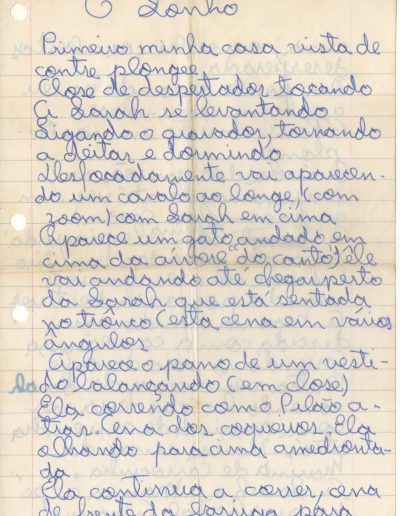 O Sonho
Primeiro minha casa vista de
contre plongee
Close de despertador tocando
A Sarah se levantando
Ligando o gravador, tornando
a deitar e dormindo
Desfocadamente vai aparecen-
do um cavalo ao longe, (com
zoom) com Sarah em cima
Aparece um gato andado em
cima da árvore "do canto", êle
vai andando até chegar perto
da Sarah que está sentada
no trônco (esta cena em vários
ângulos
Aparece o pano de um vesti-
do balançando (em close)
Ela correndo com o Pilão a-
trás. Cena dos coqueiros. Ela
olhando para cima amedronta-
da
Ela continua a correr, cena
de frente da barriga para